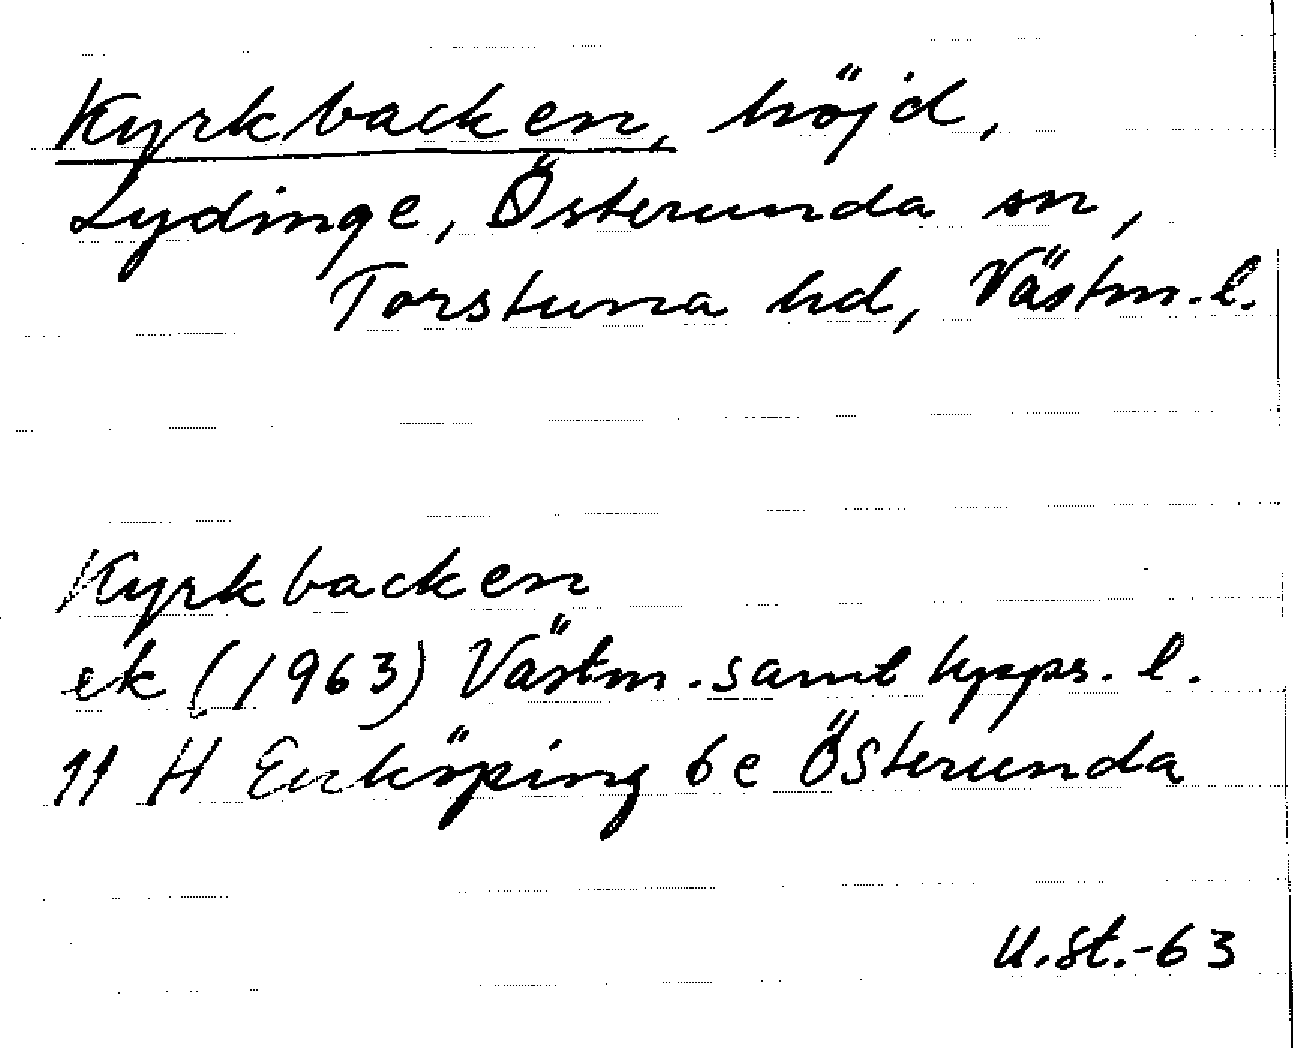 Kyrkbacken, höjd,
Lydinge, Österunda sn,
Torstuna hd, Västm. l.
Kyrkbacken
ek (1963) Västm. samt Upps. l.
11 H Enköping 6e Österunda
U.St.-63